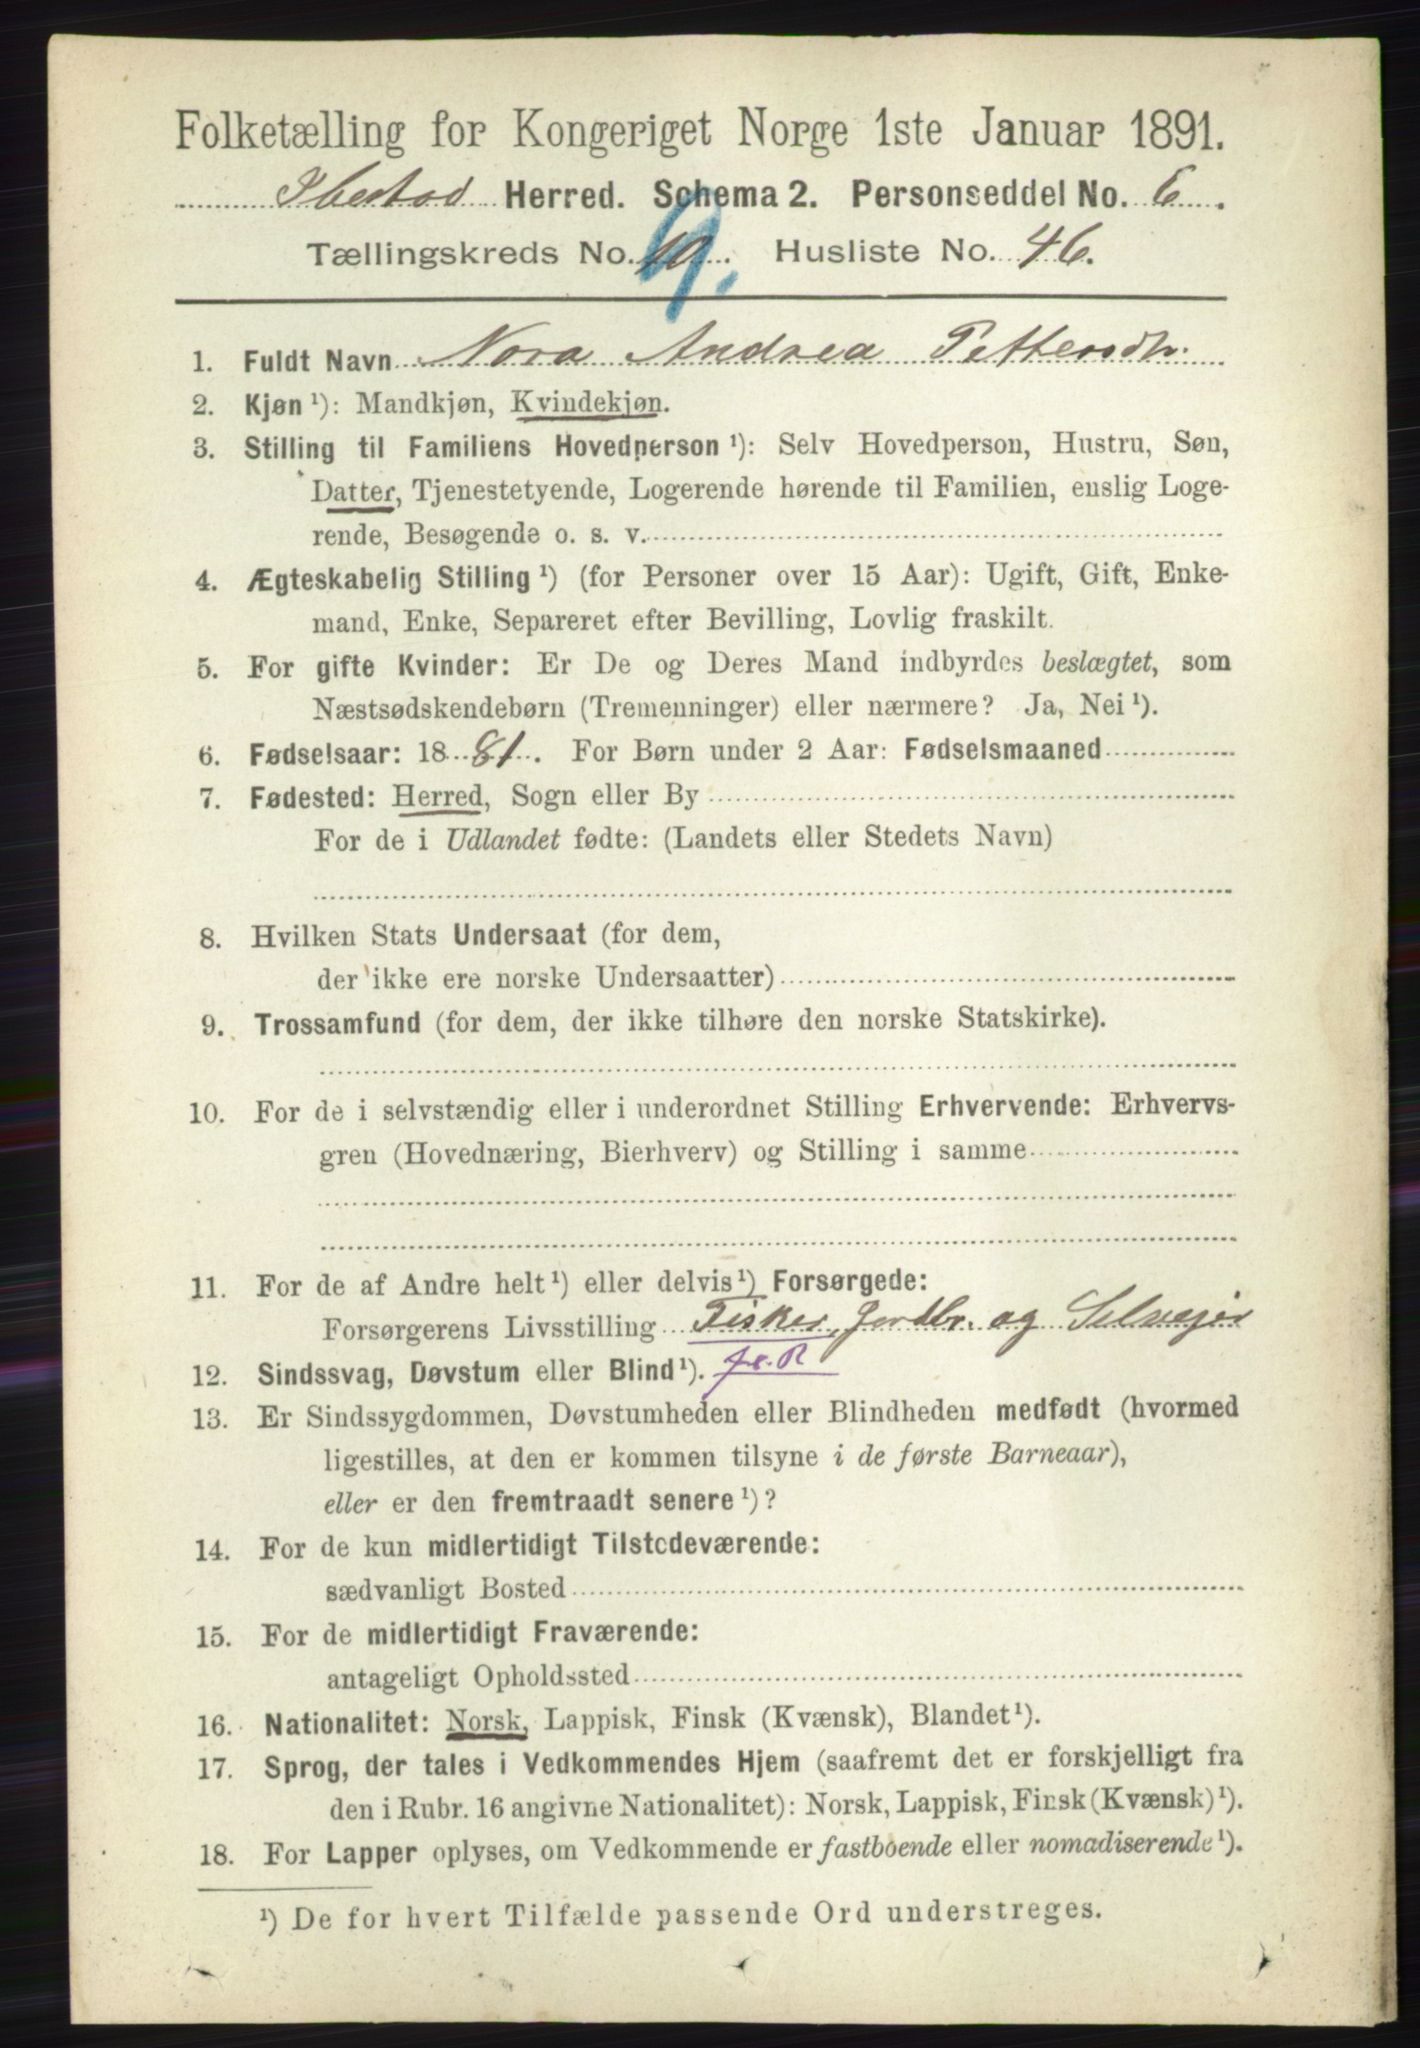 Folketælling for Kongeriget Norge 1ste Januar 1891.
Ibestad Herred. Schema 2. Personseddel No. 6.
Tællingskreds No. 10. 9. Husliste No. 46.
1. Fuldt Navn Nora Andrea Pettersdtr.
2. Kjøn ¹): Mandkjøn, Kvindekjøn.
3. Stilling til Familiens Hovedperson ¹): Selv Hovedperson, Hustru, Søn,
Datter, Tjenestetyende, Logerende hørende til Familien, enslig Loge-
rende, Besøgende o. s. v.
4. Ægteskabelig Stilling ¹) (for Personer over 15 Aar): Ugift, Gift, Enke-
mand, Enke, Separeret efter Bevilling, Lovlig fraskilt.
5. For gifte Kvinder: Er De og Deres Mand indbyrdes beslægtet, som
Næstsødskendebørn (Tremenninger) eller nærmere? Ja, Nei ¹).
6. Fødselsaar: 1881. For Børn under 2 Aar: Fødselsmaaned
7. Fødested: Herred, Sogn eller By
For de i Udlandet fødte: (Landets eller Stedets Navn)
8. Hvilken Stats Undersaat (for dem,
der ikke ere norske Undersaatter)
9. Trossamfund (for dem, der ikke tilhøre den norske Statskirke).
10. For de i selvstændig eller i underordnet Stilling Erhvervende: Erhvervs-
gren (Hovednæring, Bierhverv) og Stilling i samme
11. For de af Andre helt ¹) eller delvis ¹) Forsørgede:
Forsørgerens Livsstilling Fisker, Jordbr. og Selveier
12. Sindssvag, Døvstum eller Blind ¹).
13. Er Sindssygdommen, Døvstumheden eller Blindheden medfødt (hvormed
ligestilles, at den er kommen tilsyne i de første Barneaar),
eller er den fremtraadt senere ¹)?
14. For de kun midlertidigt Tilstedeværende:
sædvanligt Bosted
15. For de midlertidigt Fraværende:
antageligt Opholdssted
16. Nationalitet: Norsk, Lappisk, Finsk (Kvænsk), Blandet ¹).
17. Sprog, der tales i Vedkommendes Hjem (saafremt det er forskjelligt fra
den i Rubr. 16 angivne Nationalitet): Norsk, Lappisk, Finsk (Kvænsk) ¹).
18. For Lapper oplyses, om Vedkommende er fastboende eller nomadiserende ¹).
¹) De for hvert Tilfælde passende Ord understreges.